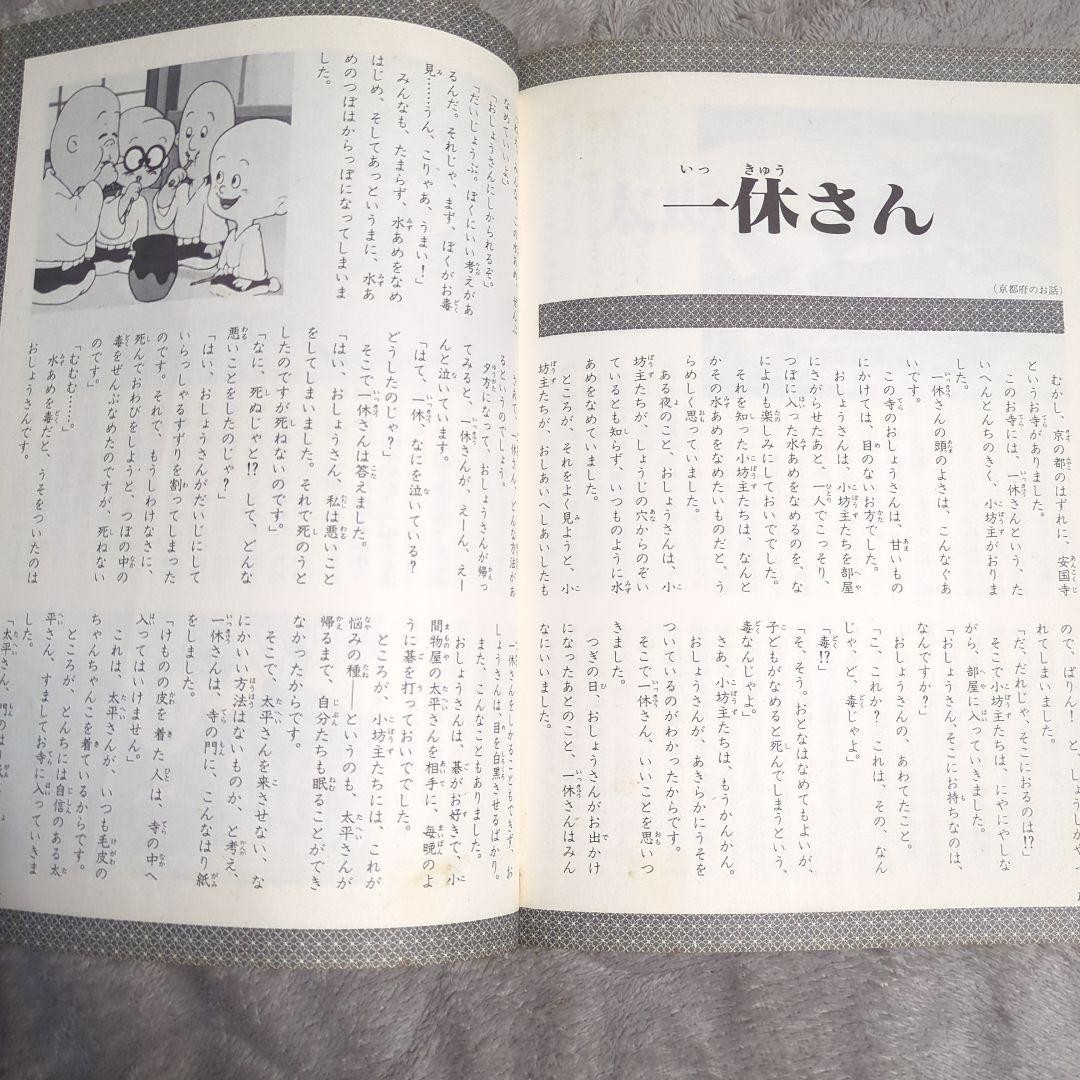 いっ きゅう
一休さん
(京都府のお話)
むかし、京の都のはずれに、安国寺
というお寺がありました。
このお寺には、一休さんという、た
いへんとんちのきく、小坊主がおりま
した。
一休さんの頭のよさは、こんなぐあ
いです。
この寺のおしょうさんは、甘いもの
にかけては、目のないお方でした。
おしょうさんは、小坊主たちを部屋
にさがらせたあと、一人でこっそり、
つぼに入った水あめをなめるのを、な
によりも楽しみにしておいででした。
それを知った小坊主たちは、なんと
かその水あめをなめたいものだと、う
らめしく思っていました。
ある夜のこと、おしょうさんは、小
坊主たちが、しょうじの穴からのぞい
ているとも知らず、いつものように水
あめをなめていました。
ところが、それをよく見ようと、小
坊主たちが、おしあいへしあいしたも
ので、ばりん!と、
れてしまいました。
「だ、だれじゃ、そこにおるのは!?」
そこで小坊主たちは、にやにやしな
がら、部屋に入っていきました。
「おしょうさん、そこにお持ちなのは、
なんですか?」
おしょうさんの、あわてたこと。
「こ、これか?これは、その、なん
じゃ、ど、毒じゃよ」
「毒!?」
「そ、そう。おとなはなめてもよいが、
子どもがなめると死んでしまうという、
毒なんじゃよ」
さあ、小坊主たちは、もうかんかん。
おしょうさんが、あきらかにうそを
ついているのがわかったからです。
そこで一休さん、いいことを思いつ
きました。
つぎの日、おしょうさんがお出かけ
になったあとのこと、一休さんはみん
なにいいました。
なめていいよ」
「おしょうさんにしかられるぞ」
「だいじょうぶ。ぼくにいい考えがあ
るんだ。それじゃ、まず、ぼくがお毒
見……うん、こりゃあ、うまい!」
みんなも、たまらず、水あめをなめ
はじめ、そしてあっというまに、水あ
めのつぼはからっぽになってしまいま
した。
るというのでしょう。
夕方になって、おしょうさんが帰っ
てみると、一休さんが、えーん、えー
んと泣いています。
「はて、一休、なにを泣いている?
どうしたのじゃ?」
そこで一休さんは答えました。
「はい、おしょうさん、私は悪いこと
をしてしまいました。それで死のうと
したのですが死ねないのです」
「なに、死ぬじゃと!?して、どんな
悪いことをしたのじゃ?」
「はい、おしょうさんがだいじにして
いらっしゃるすずりを割ってしまった
のです。それで、もうしわけなさに、
死んでおわびをしようと、つぼの中の
毒をぜんぶなめたのですが、死ねない
のです」
「むむむ……」
水あめを毒だと、うそをついたのは
おしょうさんです。
一休さんをしかることもできず、お
しょうさんは、目を白黒させるばかり。
また、こんなこともありました。
おしょうさんは、碁がお好きで、小
間物屋の太平さんを相手に、毎晩のよ
うに碁を打っておいででした。
ところが、小坊主たちには、これが
悩みの種――というのも、太平さんが
帰るまで、自分たちも眠ることができ
なかったからです。
そこで、太平さんを来させない、な
にかいい方法はないものか、と考え、
一休さんは、寺の門に、こんなはり紙
をしました。
「けものの皮を着た人は、寺の中へ
入ってはいけません」
これは、太平さんが、いつも毛皮の
ちゃんちゃんこを着ているからです。
ところが、とんちには自信のある太
平さん、すましてお寺に入っていきま
した。
「太平さん、門の